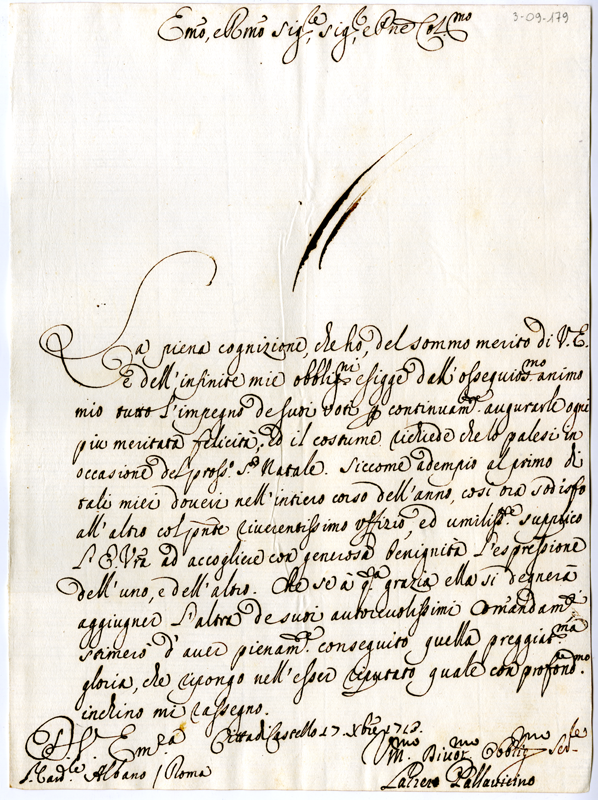 3-09-179
Emo, e Rmo Sigre, Sigre, e Pne Colmo
La piena cognizione, che ho, del sommo merito di V. E.
e dell'infinite mie obbligni esigge dall'ossequiosmo animo
mio tutto l'impegno de suoi voti p continuamte augurarle ogni
piu meritata felicità; ed il costume richiede che lo palesi in
occasione del prosso Sto Natale. Siccome adempio al primo di
tali miei doveri nell'intiero corso dell'anno, così ora sodisfo
all'altro col pnte riverentissimo uffizio, ed umilisste supplico
l'E. Vra ad accogliere con generosa benignità l'espressione
dell'uno, e dell'altro. Che se a qta grazia ella si degnerà
aggiugner l'altra de suoi autorevolissimi comandamti
stimerò d'aver pienamte conseguito quella preggiatma
gloria, che ripongo nell'esser riputato quale con profondmo
inchino mi rassegno.
D V. Emza Città di Castello 17 Xbre 1713.
Sr Cardle Albano / Roma
Vmo Divotmo Obblimo Serre
Lazzero Pallavicino